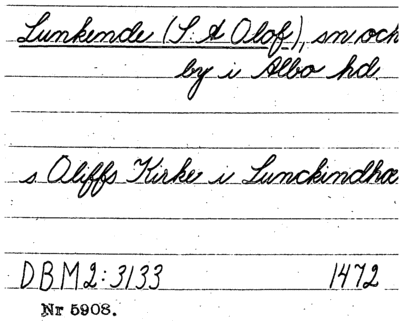 Lunkende (S:t Olof), sn och
by i Albo hd.
s Oliffs Kirke i Lunckindhæ
DBM2:3133 1472
Nr 5908.